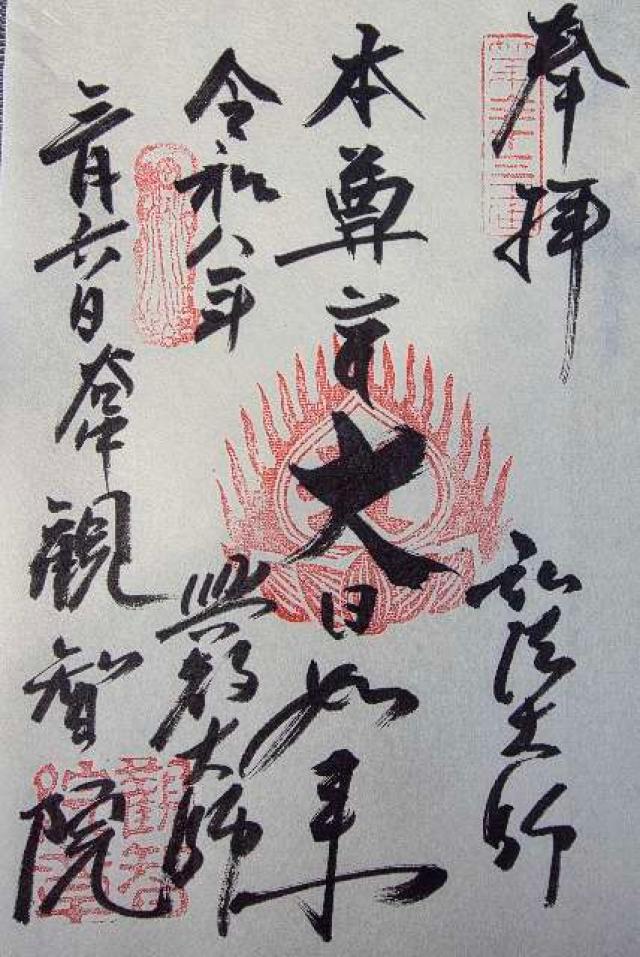 奉拝
弘法大師
本尊
大日如来
令和八年
興教大師
三月六日
観智院